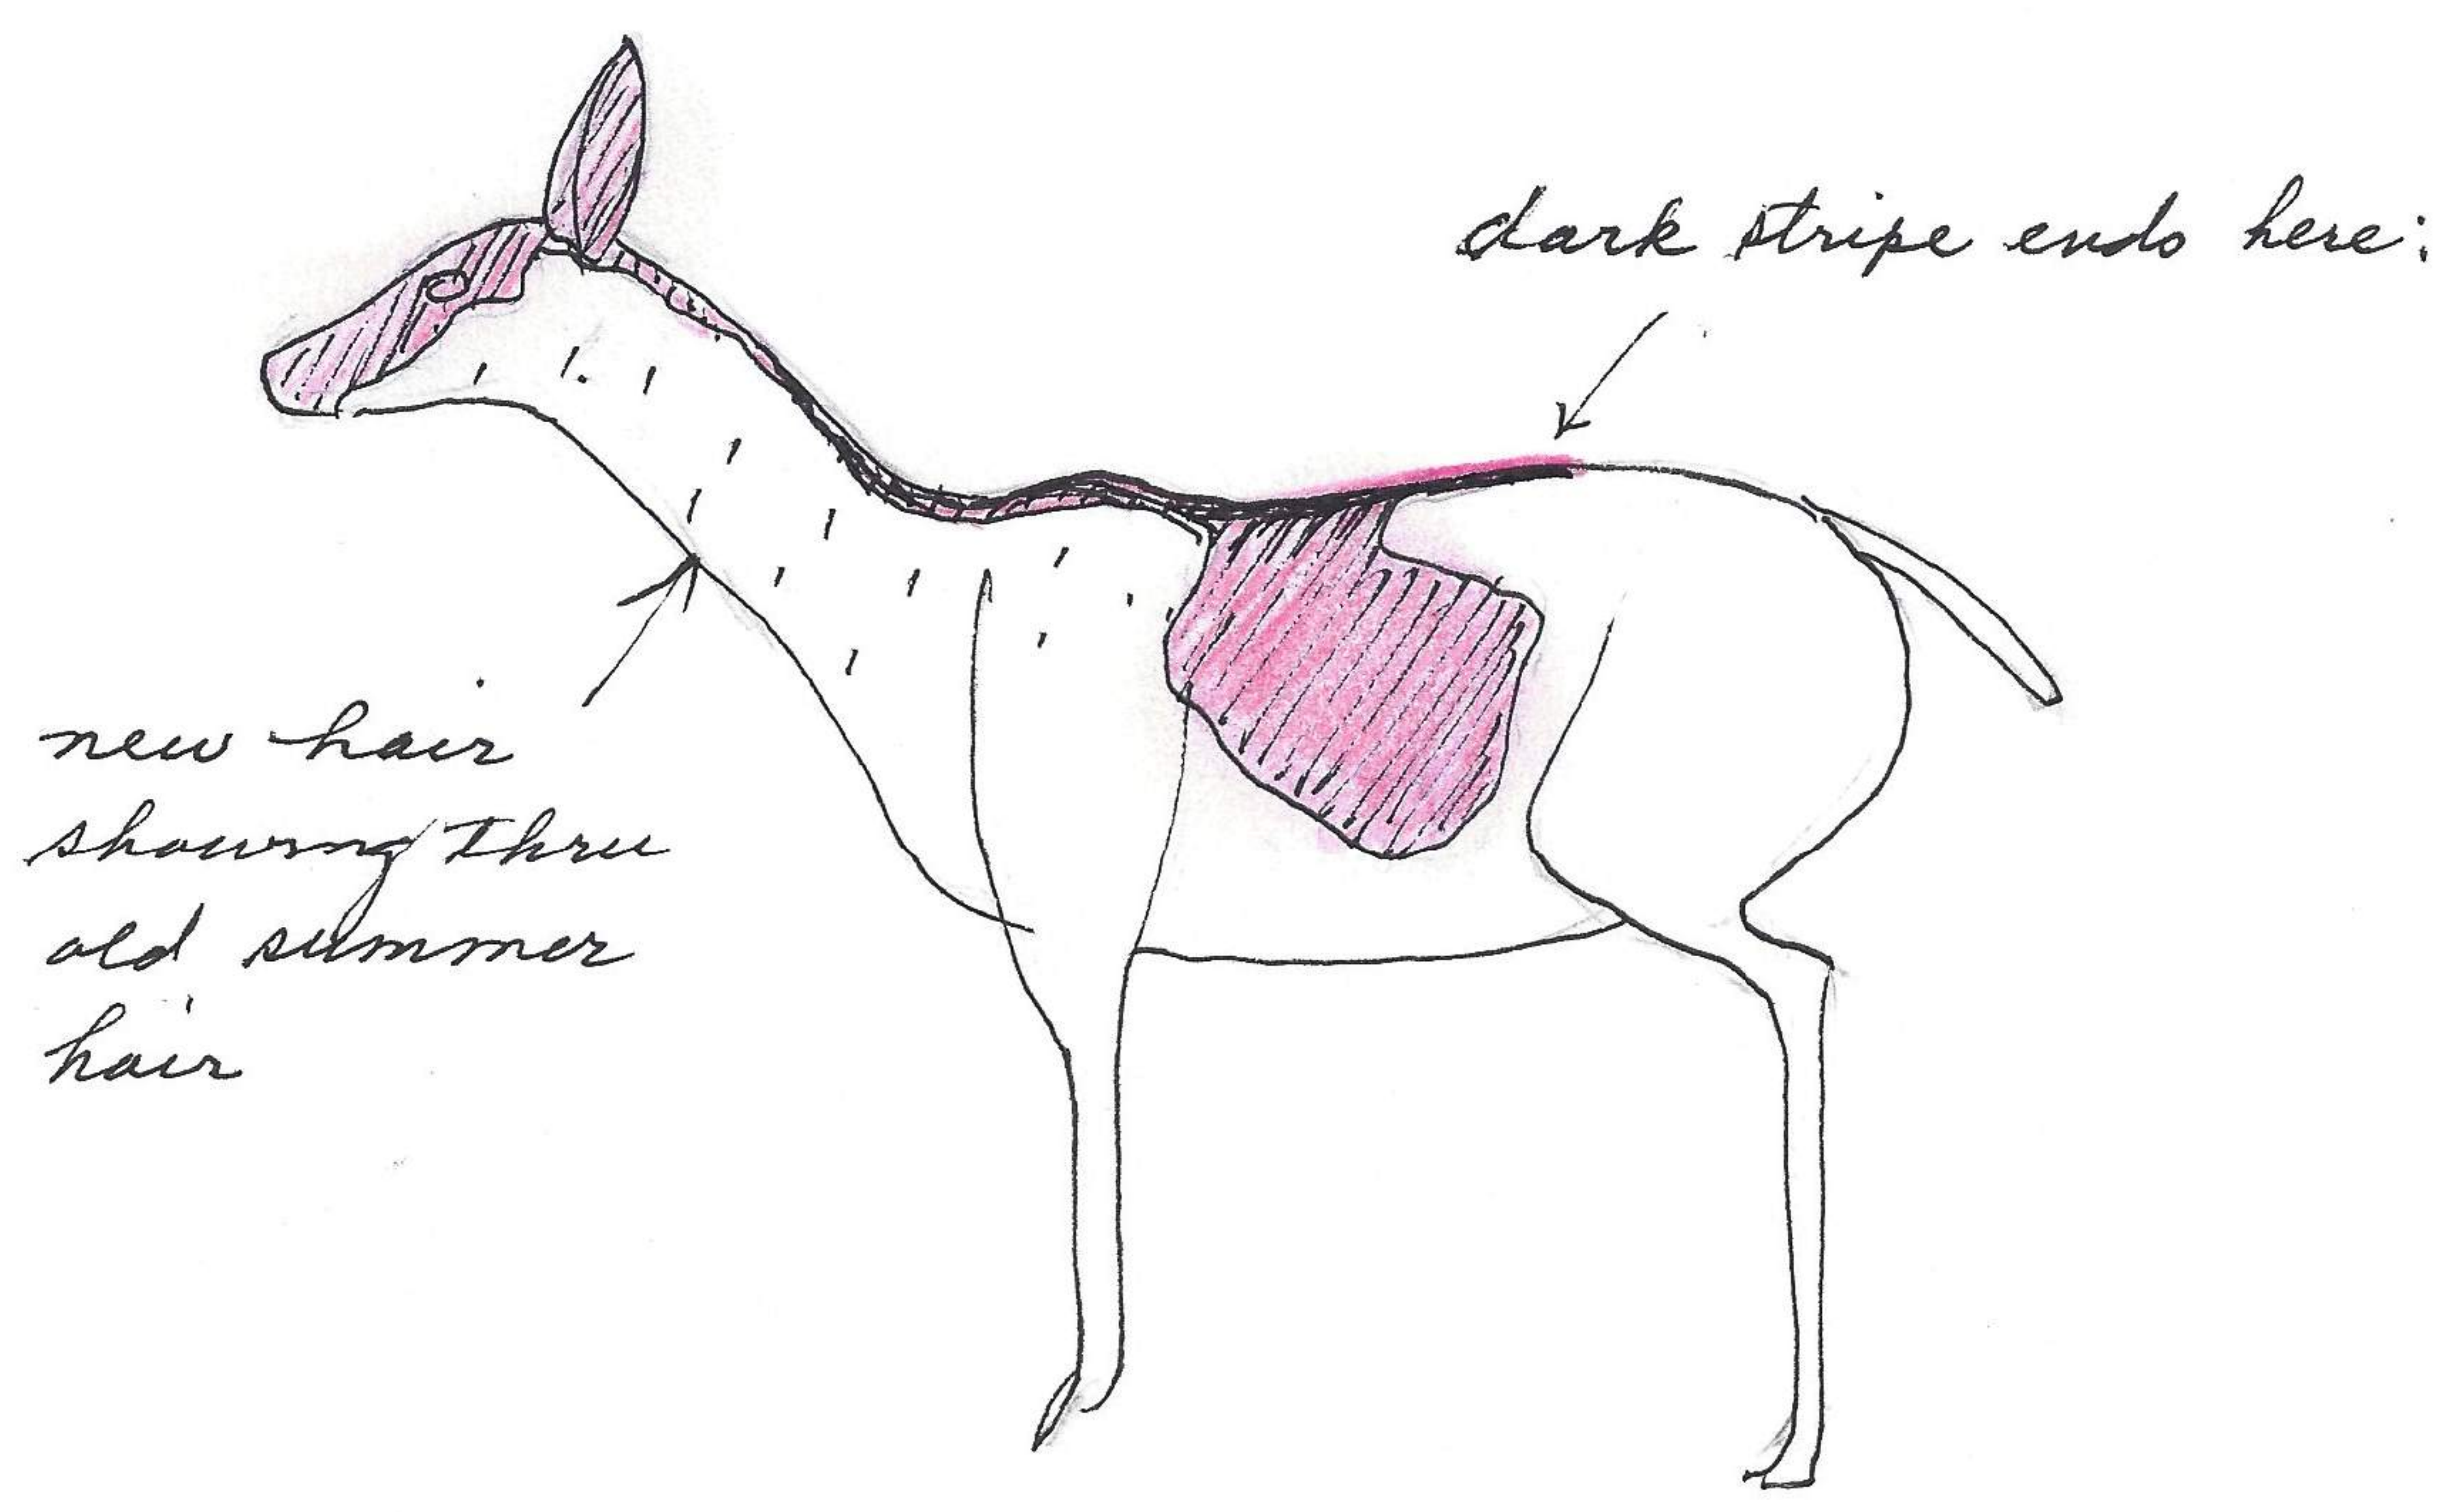 dark stripe ends here:
new hair
showing thru
old summer
hair